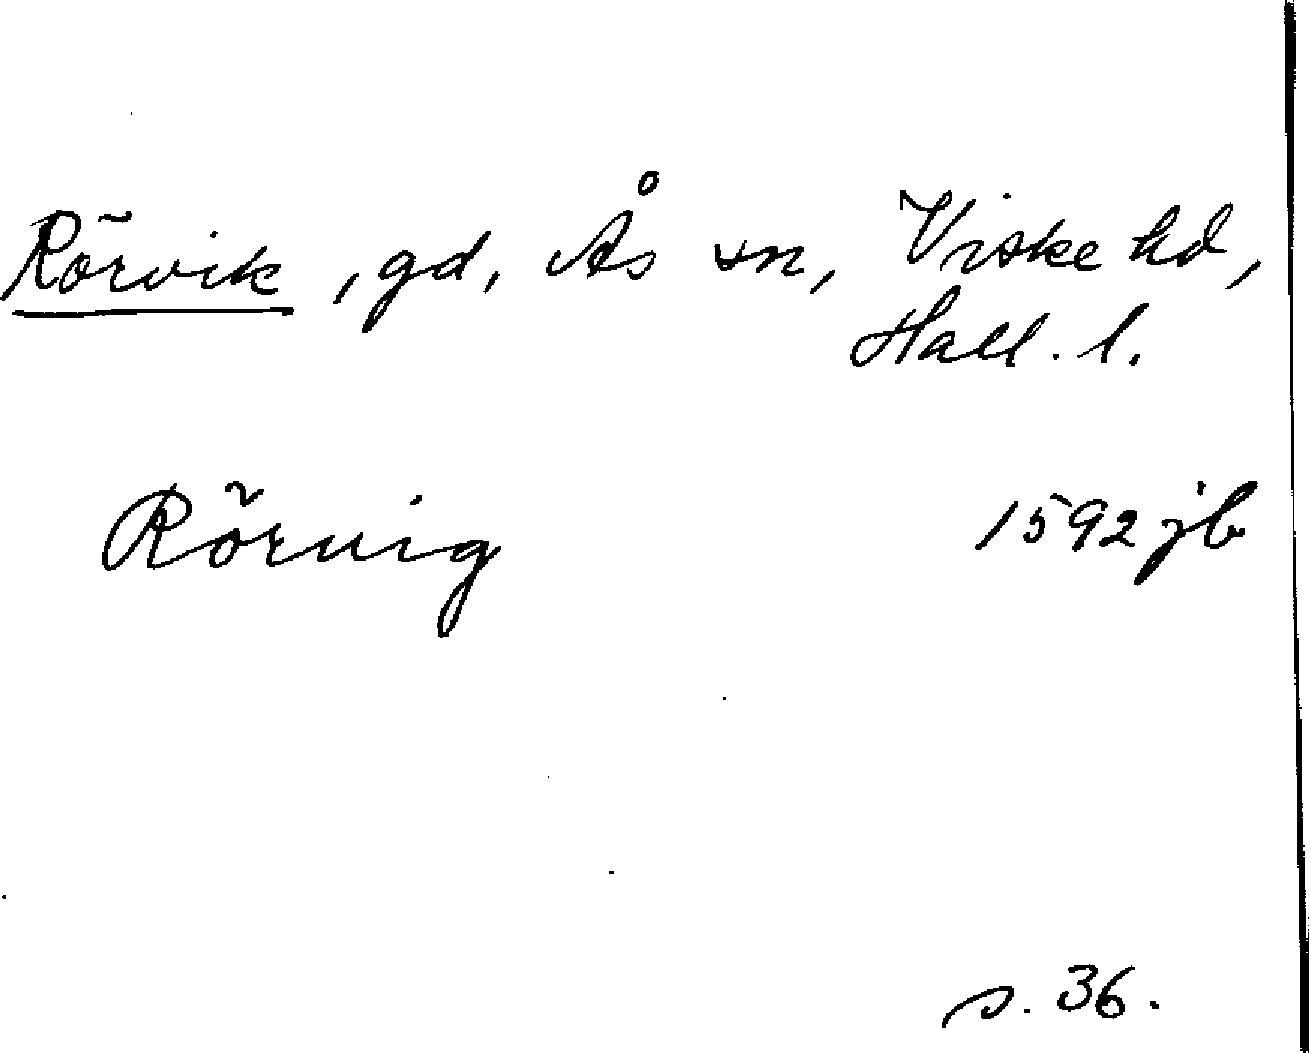 Rörvik, gd, Ås sn, Viske hd,
Hall. l.
Rörvig 1592 jb
s. 36.